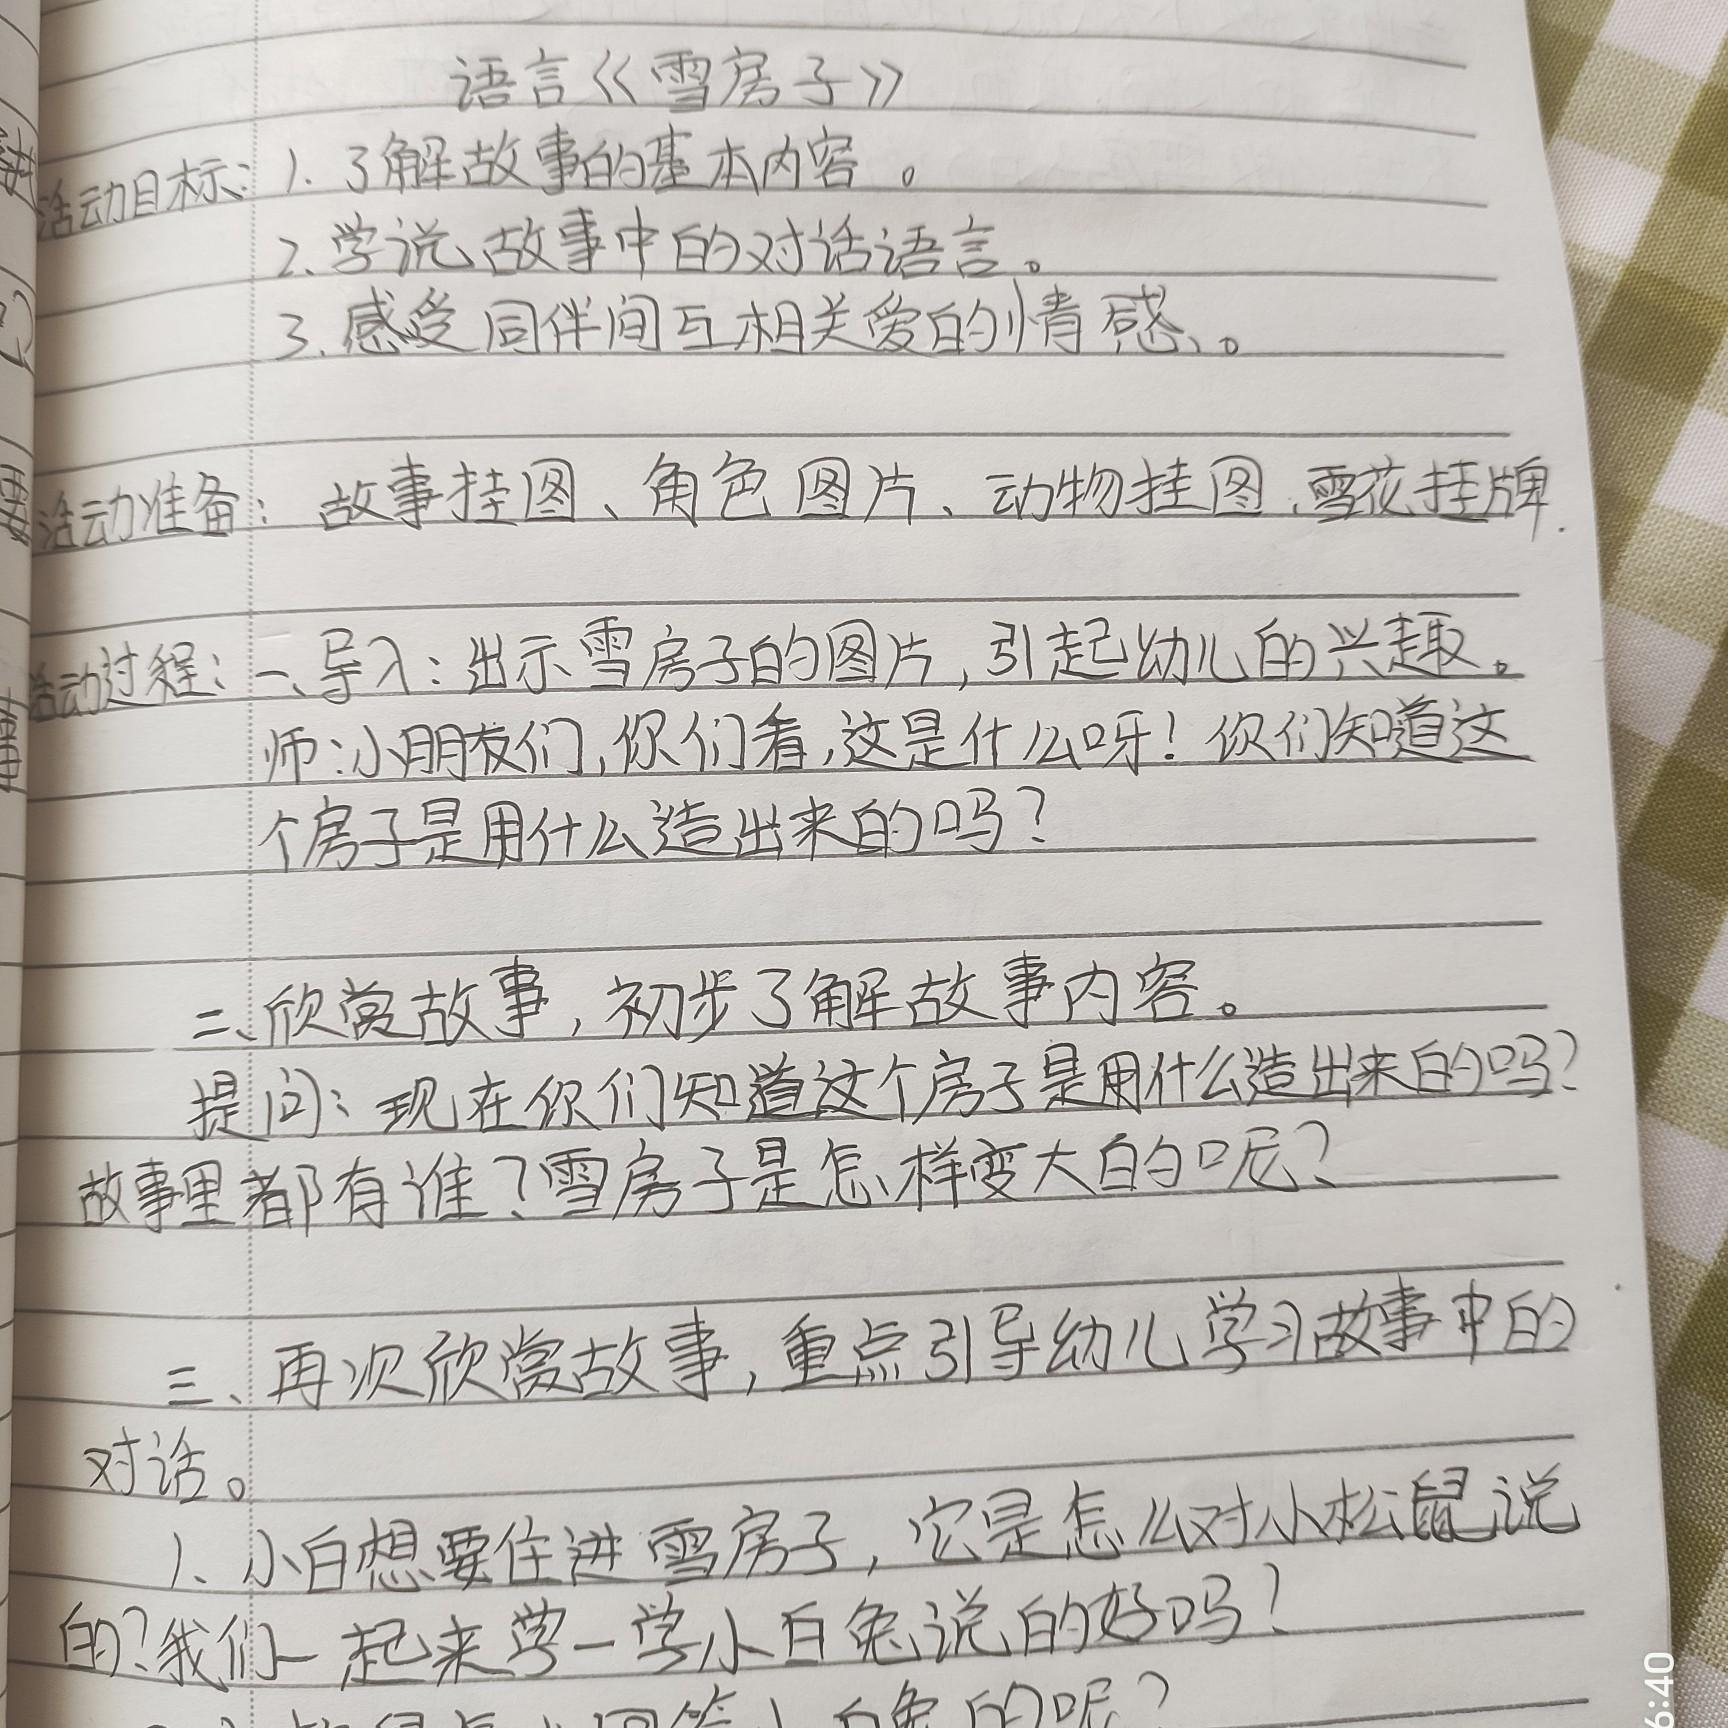 语言《雪房子》
活动目标: 1. 了解故事的基本内容。
2. 学说故事中的对话语言。
3. 感受同伴间互相关爱的情感。
活动准备: 故事挂图、角色图片、动物挂图、雪花挂牌.
活动过程: 一、导入: 出示雪房子的图片,引起幼儿的兴趣。
师:小朋友们,你们看,这是什么呀! 你们知道这
个房子是用什么造出来的吗?
二、欣赏故事,初步了解故事内容。
提问: 现在你们知道这个房子是用什么造出来的吗?
故事里都有谁?雪房子是怎样变大的呢?
三、再次欣赏故事,重点引导幼儿学习故事中的
对话。
1、小白想要住进雪房子,它是怎么对小松鼠说
的?我们一起来学一学小白兔说的好吗?
6:40